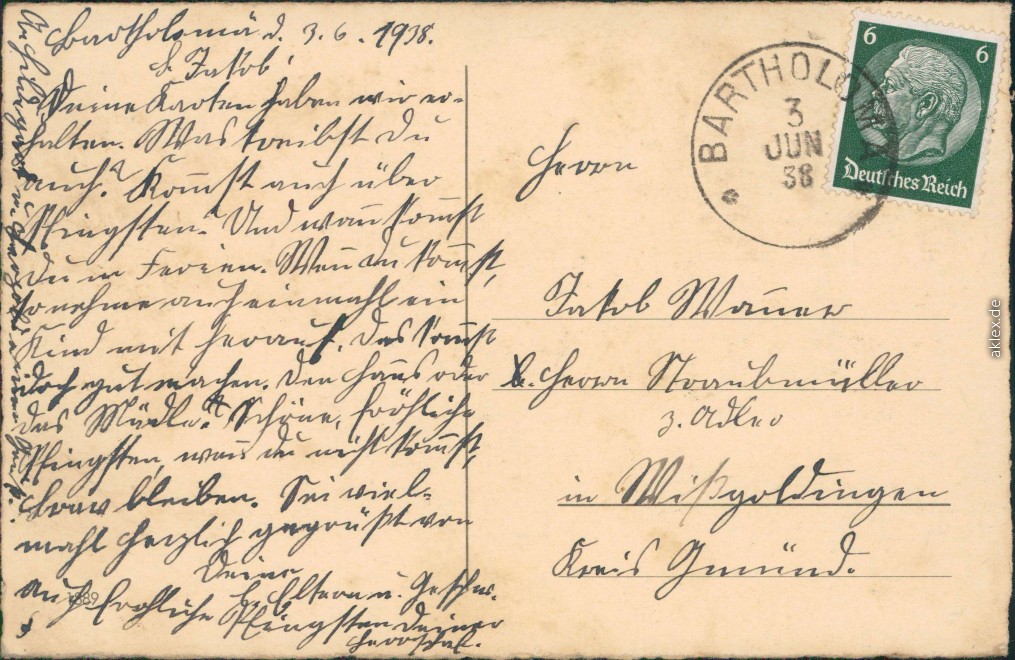 Bartholomä d. 3.6.1938.
b. Jakob!
Deine Karten haben wir er-
halten. Was treibst Du
auch? Kom̄st auch über
Pfingsten. Und wan̄ kom̄st
Du in Ferien. Wen̄ du kom̄st,
so nehme auch einmahl ein
Kind mit herauf. Das kom̄st
doch gut machen. Den Hans oder
das Mädle. Schöne, fröhliche
Pfingsten, wen̄ du nicht kom̄st,
brav bleiben. Sei viel-
mahl herzlich gegrüßt von
Deine
b. Eltern u. Geschw.
Auch fröhliche Pfingsten Deiner
Herrschaf.
1889
BARTHOLOMÄ
3
JUN
38
6 6
Deutsches Reich
Herrn
Jakob Wan̄er
b. Herrn Straubmüller
z. Adler
in Wißgoldingen
Kreis Gmünd.
aklex.de